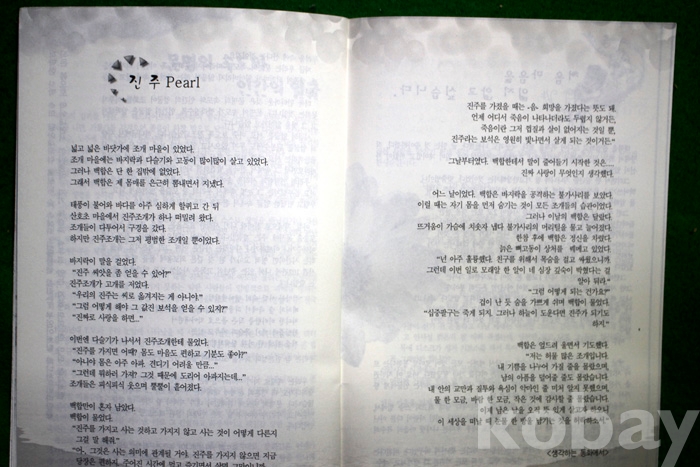 진주 Pearl
넓고 넓은 바닷가에 조개 마을이 있었다.
조개 마을에는 바지락과 다슬기와 고동이 많이많이 살고 있었다.
그러나 백합은 단 한 집밖에 없었다.
그래서 백합은 제 몸매를 은근히 뽐내면서 지냈다.
태풍이 불어와 바다를 아주 심하게 할퀴고 간 뒤
산호초 마을에서 진주조개가 하나 떠밀려 왔다.
조개들이 다투어서 구경을 갔다.
하지만 진주조개는 그저 평범한 조개일 뿐이었다.
바지락이 말을 걸었다.
"진주 씨앗을 좀 얻을 수 있어?"
진주조개가 고개를 저었다.
"우리의 진주는 씨로 옮겨지는 게 아니야."
"그럼 어떻게 해야 그 값진 보석을 얻을 수 있지?"
"진짜로 사랑을 하면..."
이번엔 다슬기가 나서서 진주조개한테 물었다.
"진주를 가지면 어때? 몸도 마음도 편하고 기분도 좋아?"
"아니야 몸은 아주 아파. 견디기 어려울 만큼..."
"그런데 뭐하러 가져? 그것 때문에 도리어 아파지는데..."
조개들은 피식피식 웃으며 뿔뿔이 흩어졌다.
백합만이 혼자 남았다.
백합이 물었다.
"진주를 가지고 사는 것하고 가지지 않고 사는 것이 어떻게 다른지
그걸 말 해줘."
"어, 그것은 사는 의미에 관계될 거야. 진주를 가지지 않으면 지금
당장은 편하지. 주어진 시간에 먹고 즐기면서
진주를 가졌을 때는 -음- 희망을 가졌다는 뜻도 돼.
언제 어디서 죽음이 나타나더라도 두렵지 않거든.
죽음이란 그저 껍질과 살이 없어지는 것일 뿐,
진주라는 보석은 영원히 빛나면서 살게 되는 것이거든."
그날부터였다. 백합한테서 말이 줄어들기 시작한 것은....
진짜 사랑이 무엇인지 생각했다.
어느 날이었다. 백합은 바지락을 공격하는 불가사리를 보았다
이럴 때는 자기 몸을 먼저 숨기는 것이 모든 조개들의 습관이었다.
그러나 이날의 백합은 달랐다.
뜨거움이 가슴에 치솟자 냅다 불가사리의 머리털을 물고 늘어졌다.
한참 후에 백합은 정신을 차렸다
늙은 뻐고둥이 상처를 베매고 있었다.
"넌 아주 훌륭했다. 친구를 위해서 목숨을 걸고 싸웠으니까
그런데 이번 일로 모래알 한 알이 네 심장 깊숙이 박혔다는 걸
알아 둬라."
"그럼 어떻게 되는 건가요?"
겁이 난 듯 숨을 가쁘게 쉬며 백합이 물었다.
"십중팔구는 죽게 되지. 그러나 하늘이 도운다면 진주가 되기도
하지."
백합은 엎드려 울면서 기도했다.
"저는 허물 많은 조개입니다.
내 기쁨을 나누어 가질 줄을 몰랐으며,
남의 아픔을 덜어줄 줄도 몰랐습니다.
내 안의 교만과 질투와 욕심이 악마인 줄 미처 알지 못했으며,
물 한 모금, 바람 한 모금, 작은 것에 감사할 줄 몰랐습니다.
<생각하는 동화에서>
kobay